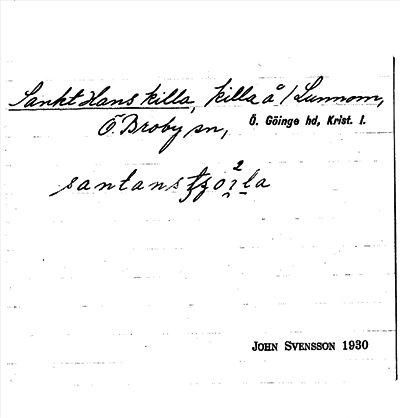 Sankt Hans killa, killa å / Lunnom,
Ö. Broby sn, Ö. Göinge hd, Krist. l.
JOHN SVENSSON 1930